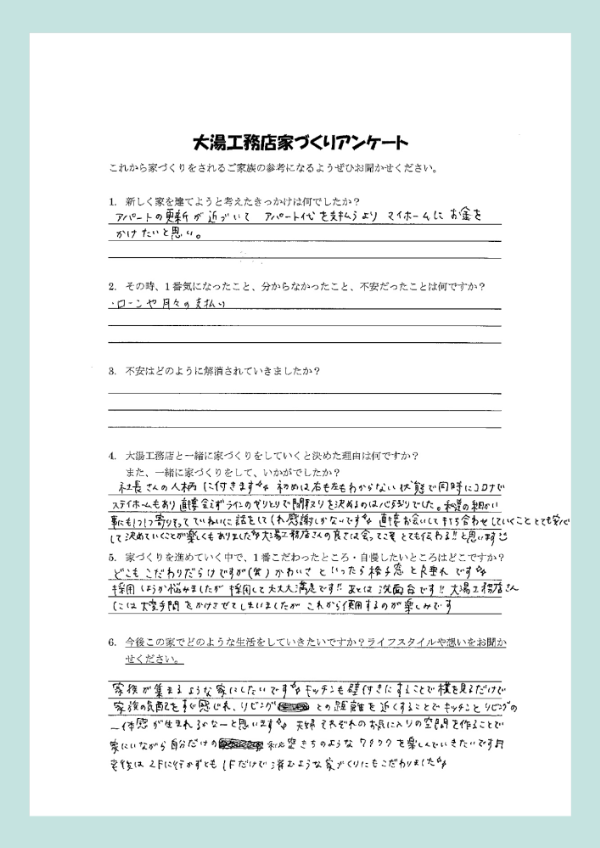 大湯工務店家づくりアンケート
これから家づくりをされるご家族の参考になるようぜひお聞かせください。
1. 新しく家を建てようと考えたきっかけは何でしたか？
アパートの更新が近づいて アパート代を支払うより マイホームに お金を
かけたいと思い。
2. その時、1番気になったこと、分からなかったこと、不安だったことは何ですか？
・ローンや月々の支払い
3. 不安はどのように解消されていきましたか？
4. 大湯工務店と一緒に家づくりをしていくと決めた理由は何ですか？
また、一緒に家づくりをして、いかがでしたか？
社長さんの人柄に付きます 初めは右も左もわからない状態で同時にコロナで
ステイホームもあり 直接会えずラインのやりとりで間取りを決めるのは心配でした。私達の細かい
事にも1つ1つ寄りそってていねいに話をしてくれ感謝しかないです 直接お会いして打ち合わせしていくこととても安心
して決めていくことが楽しくもありました 大湯工務店さんの良さは会ってこそとても伝わる!!と思います
5. 家づくりを進めていく中で、1番こだわったところ・自慢したいところはどこですか？
どこもこだわりだらけですが(笑) かわいさ といったら格子窓と R垂れ です
採用しようか悩みましたが 採用して大大大満足です!! あとは 洗面台です!! 大湯工務店さん
には大変手間をかけさせてしまいましたが これから使用するのが楽しみです
6. 今後この家でどのような生活をしていきたいですか？ライフスタイルや想いをお聞か
せください。
家族が集まるような家にしたいです キッチンも壁付きにすることで横を見るだけで
家族の気配をすぐ感じれ、リビング との距離を近くすることでキッチンとリビングの
一体感が生まれるかなーと思います 夫婦それぞれのお気に入りの空間を作ることで
家にいながら自分だけの 秘密きちのような ワクワクを楽しんでいきたいです
老後は 2Fに行かずとも 1Fだけで済むような家づくりにもこだわりました